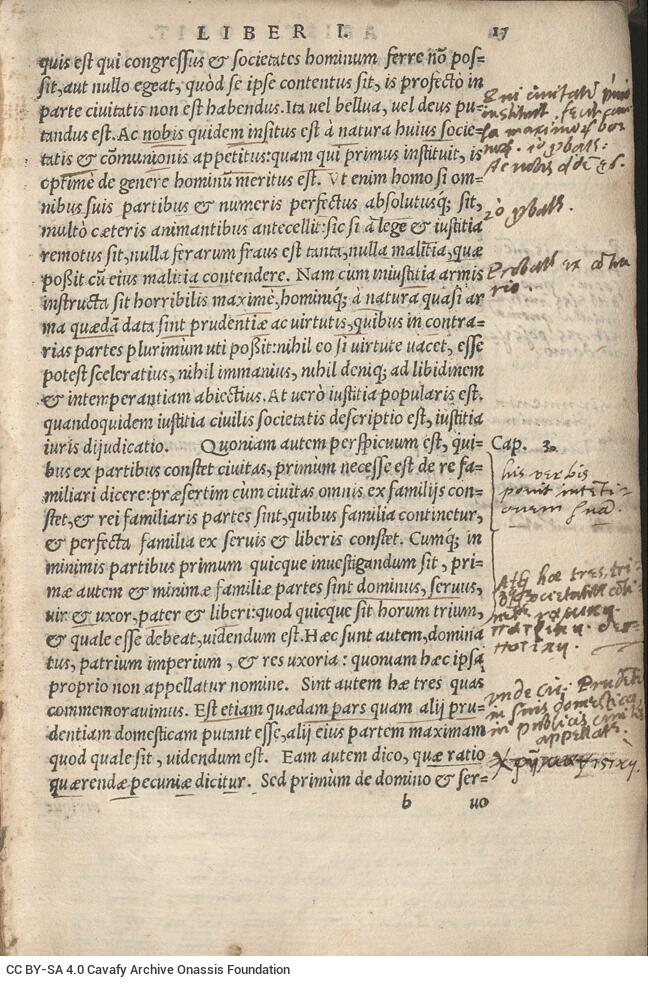 LIBER I. 17
quis est qui congressus & societates hominum ferre nõ pos=
sit, aut nullo egeat, quòd se ipse contentus sit, is profectò in
parte ciuitatis non est habendus. Ita vel bellua, vel deus pu=
tandus est. Ac nobis quidem insitus est à natura huius socie=
tatis & cõmunionis appetitus: quam qui primus instituit, is
optimè de genere hominũ meritus est. Vt enim homo si om=
nibus suis partibus & numeris perfectus absolutusq; sit,
multò cæteris animantibus antecellit: sic si à lege & iustitia
remotus sit, nulla ferarum fraus est tanta, nulla malitia, quæ
poßit cũ eius malitia contendere. Nam cum iniustitia armis
instructa sit horribilis maximè, hominiq; à natura quasi ar
ma quædã data sint prudentiæ ac virtutis, quibus in contra=
rias partes plurimùm uti poßit: nihil eo si virtute uacet, esse
potest sceleratius, nihil immanius, nihil deniq; ad libidinem
& intemperantiam abiectius. At uerò iustitia popularis est.
quandoquidem iustitia ciuilis societatis descriptio est, iustitia
iuris dijudicatio. Quoniam autem perspicuum est, qui= Cap. 3.
bus ex partibus constet ciuitas, primùm necesse est de re fa=
miliari dicere: præsertim cum ciuitas omnis ex familijs con=
stet, & rei familiaris partes sint, quibus familia continetur,
& perfecta familia ex seruis & liberis constet. Cumq; in
minimis partibus primum quicque inuestigandum sit, pri=
mæ autem & minimæ familiæ partes sint dominus, seruus,
uir & uxor, pater & liberi: quod quicque sit horum trium,
& quale esse debeat, uidendum est. Hæc sunt autem, domina
tus, patrium imperium, & res uxoria: quoniam hæc ipsa
proprio non appellatur nomine. Sint autem hæ tres quas
commemorauimus. Est etiam quædam pars quam alij pru=
dentiam domesticam putant esse, alij eius partem maximam
quod quale sit, uidendum est. Eam autem dico, quæ ratio
quærendæ pecuniæ dicitur. Sed primùm de domino & ser=
b uo
his verbis
ponit
hæ tres
in publicis
CC BY-SA 4.0 Cavafy Archive Onassis Foundation